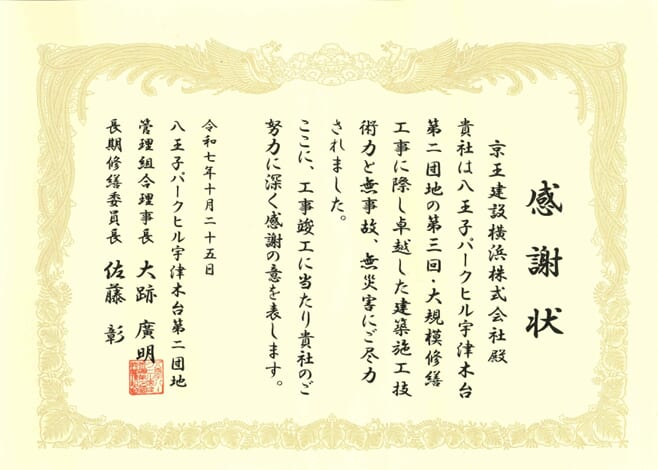 感謝状
京王建設横浜株式会社 殿
貴社は八王子パークヒル宇津木台
第二団地の第三回・大規模修繕
工事に際し卓越した建築施工技
術力と無事故、無災害にご尽力
されました。
ここに、工事竣工に当たり貴社のご
努力に深く感謝の意を表します。
令和七年十月二十五日
八王子パークヒル宇津木台第二団地
管理組合理事長 大跡 廣明
長期修繕委員長 佐藤 彰